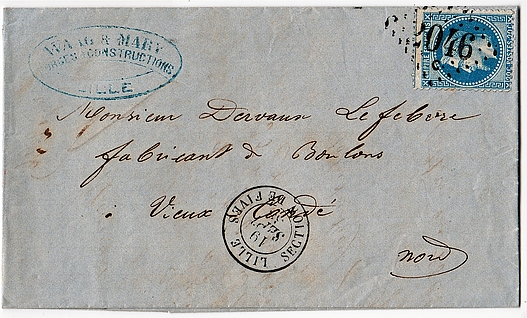 FORGES & CONSTRUCTIONS
LILLE
2046
Monsieur Dervaux Lefebvre
fabricant de Boulons
Vieux Condé
nord
LILLE SECTION DE FIVES
19
SEPT